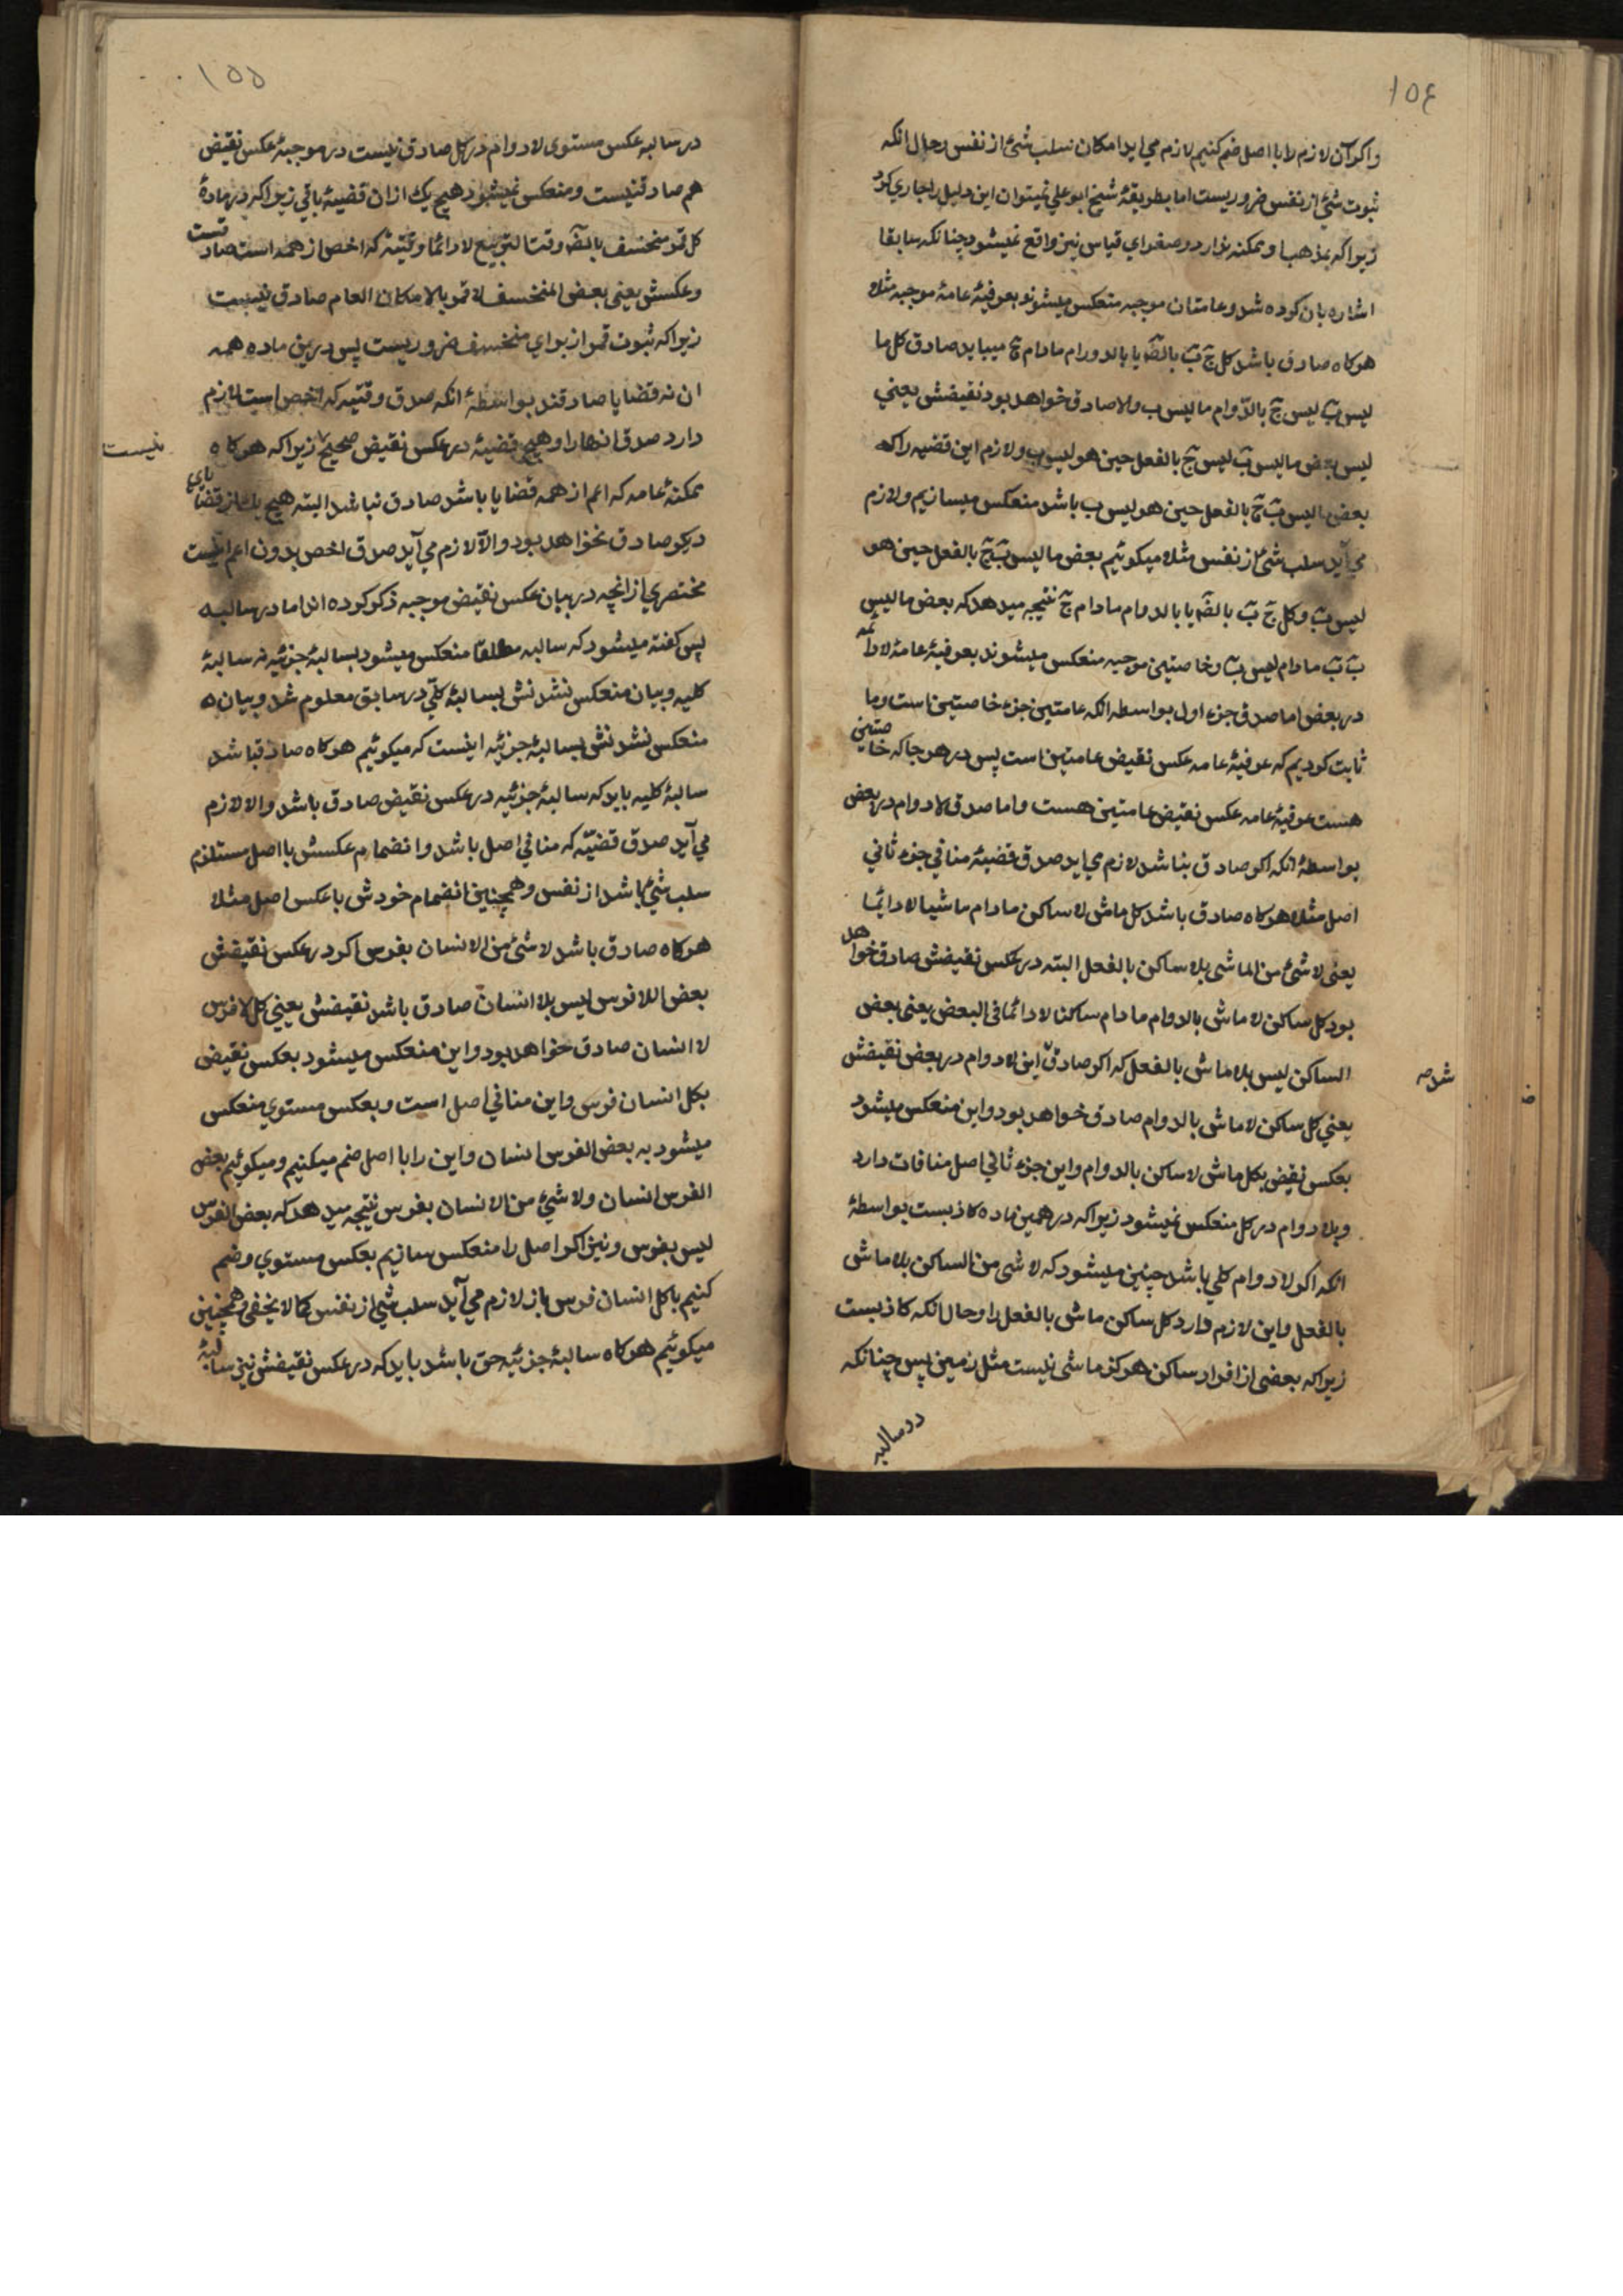 ۱۵۴
واکرآن لازم لا با اصل ضم کنیم لازم می اید امکان سلب شئ از نفس وحال انکه
ثبوت شئ از نفس ضروریست اما بطریقهٔ شیخ ابو علي نمیتوان این دلیل را جاری کرد
زیراکه بمذهب او ممکنه در صغرای قیاس نیز واقع نمیشود چنانکه سابقا
اشاره بان کرده شد وعامتان موجبه منعکس میشوند بعرفیهٔ عامهٔ موجبه مثلا
هرکاه صادق باشد کل ج ب بالضـ یا بالدوام مادام ج میباید صادق کل ما
لیس ب لیس ج بالدّوام ما لیس ب والا صادق خواهد بود نقیضش یعني
لیس بعض ما لیس ب لیس ج بالفعل حین هو لیس ب ولازم این قضیه راکه
بعض ما لیس ب ج بالفعل حین هو لیس ب باشد منعکس میسازیم ولازم
می آید سلب شئ از نفس مثلا میکوئیم بعض ما لیس ب ج بالفعل حین هو
لیس ب وکل ج ب بالضـ یا بالدوام مادام ج نتیجه میدهد که بعض ما لیس
ب ب مادام لیس ب وخاصتین موجبه منعکس میشوند بعرفیهٔ عامهٔ لادائمه
در بعض اما صدق جزء اول بواسطه انکه عامتین جزء خاصتین است وما
ثابت کردیم که عرفیهٔ عامه عکس نقیض عامتین است پس در هر جا که خاصتین
هست عرفیهٔ عامه عکس نقیض عامتین هست واما صدق لادوام در بعض
بواسطهٔ انکه اکر صادق نباشد لازم می اید صدق قضیهٔ منافی جزء ثانی
اصل مثلا هرکاه صادق باشد کل ماش لا ساکن مادام ماشیا لا دائما
یعنی لا شئ من الماشی بلا ساکن بالفعل البته در عکس نقیضش صادق خواهد
بود کل ساکن لا ماش بالدوام مادام ساکنا لادائما فی البعض یعنی بعض
الساکن لیس بلا ماش بالفعل که اکر صادق این لادوام در بعض نقیضش
شد صـ
یعني کل ساکن لا ماش بالدوام صادق خواهد بود واین منعکس میشود
بعکس نقیض بکل ماش لا ساکن بالدوام واین جزء ثانی اصل منافات دارد
وبلا دوام در کل منعکس نمیشود زیراکه در همین ماده کاذبست بواسطهٔ
انکه اکر لادوام کلی باشد چنین میشود که لا شی من الساکن بلا ماش
بالفعل واین لازم دارد کل ساکن ماش بالفعل را وحال انکه کاذبست
زیراکه بعضی از افراد ساکن هرکز ماشی نیست مثل زمین پس چنانکه
در سالبه
۱۵۵
در سالبه عکس مستوی لادوام در کل صادق نیست در موجبهٔ عکس نقیض
هم صادق نیست ومنعکس نمیشود هیچ یك ازان قضیهٔ باقی زیراکه در مادهٔ
کل قمر منخسف بالضـ وقت التربیع لا دائما وقتیهٔ که اخص از همه است صادقست
وعکسش یعنی بعض المنخسف لا قمر بالامکان العام صادق نیست
زیراکه ثبوت قمر از برای منخسف ضروریست پس در این ماده همه
ان نه قضایا صادقند بواسطهٔ انکه صدق وقتیه که اخص است لازم
دارد صدق انها را وهیچ قضیهٔ در عکس نقیض صحیح زیراکه هرکاه
نیست
ممکنهٔ عامه که اعم از همه قضایا باشد صادق نباشد البته هیچ یك از قضایای
دیکر صادق نخواهد بود والّا لازم می آید صدق اخص بدون اعم اینست
مختصری ازانچه در بیان عکس نقیض موجبه ذکر کرده اند اما در سالبه
پس کفته میشود که سالبه مطلقا منعکس میشود بسالبهٔ جزئیه نه سالبهٔ
کلیه وبیان منعکس نشدنش بسالبهٔ کلی در سابق معلوم شد وبیان
منعکس نشدنش بسالبهٔ جزئیه اینست که میکوئیم هرکاه صادق باشد
سالبهٔ کلیه باید که سالبهٔ جزئیه در عکس نقیض صادق باشد والا لازم
می آید صدق قضیّه که منافی اصل باشد وانضمام عکسش با اصل مستلزم
سلب شئ باشد از نفس وهمچنین انضمام خودش با عکس اصل مثلا
هرکاه صادق باشد لا شئ من الانسان بفرس اکر در عکس نقیضش
بعض اللافرس لیس بلا انسان صادق باشد نقیضش یعني کل لا فرس
لا انسان صادق خواهد بود واین منعکس میشود بعکس نقیض
بکل انسان فرس واین منافی اصل است وبعکس مستوي منعکس
میشود به بعض الفرس انسان واین را با اصل ضم میکنیم ومیکوئیم بعض
الفرس انسان ولا شئ من الانسان بفرس نتیجه میدهد که بعض الفرس
لیس بفرس ونیز اکر اصل را منعکس سازیم بعکس مستوي وضم
کنیم با کل انسان فرس باز لازم می آید سلب شئ از نفس کما لا یخفی وهمچنین
میکوئیم هرکاه سالبهٔ جزئیه حق باشد باید که در عکس نقیضش نیز سالبهٔ